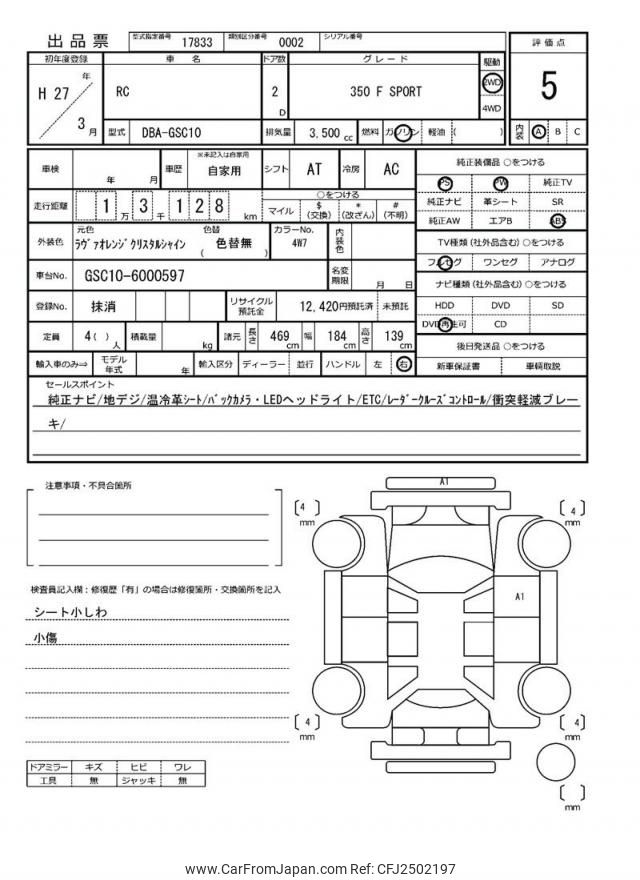 出品票
型式指定番号 17833 類別区分番号 0002 シリアル番号
初年度登録 車名 ドア数 グレード 駆動 評価点
H 27 年 3 月 RC 2 D 350 F SPORT 2WD 4WD 5
型式 DBA-GSC10 排気量 3,500 cc 燃料 ガソリン 軽油 ( ) 内装 A B C
車検 年 月 車歴 ※未記入は自家用 自家用 シフト AT 冷房 AC
走行距離 1 万 3 千 1 2 8 km ○をつける マイル $ (交換) * (改ざん) # (不明)
外装色 元色 ラヴァオレンジクリスタルシャイン 色替 ( 色替無 ) カラーNo. 4W7 内装色
車台No. GSC10-6000597 名変期限 月 日
登録No. 抹消 リサイクル預託金 12,420円預託済 未預託
定員 4( )人 積載量 kg 諸元 長さ 469 cm 幅 184 cm 高さ 139 cm
輸入車のみ⇒ モデル年式 年 輸入区分 ディーラー 並行 ハンドル 左 右
純正装備品 ○をつける
PS PW 純正TV
純正ナビ 革シート SR
純正AW エアB ABS
TV種類(社外品含む) ○をつける
フルセグ ワンセグ アナログ
ナビ種類(社外品含む) ○をつける
HDD DVD SD
DVD再生可 CD
後日発送品 ○をつける
新車保証書 車輌取説
セールスポイント
純正ナビ/地デジ/温冷革シート/バックカメラ・LEDヘッドライト/ETC/レーダークルーズコントロール/衝突軽減ブレー
キ/
注意事項・不具合箇所
検査員記入欄:修復歴「有」の場合は修復箇所・交換箇所を記入
シート小しわ
小傷
ドアミラー キズ ヒビ ワレ
工具 無 ジャッキ 無
A1
[ 4 ] mm
[ 4 ] mm
A1
[ 4 ] mm
[ 4 ] mm
[ ] mm
www.CarFromJapan.com Ref: CFJ2502197